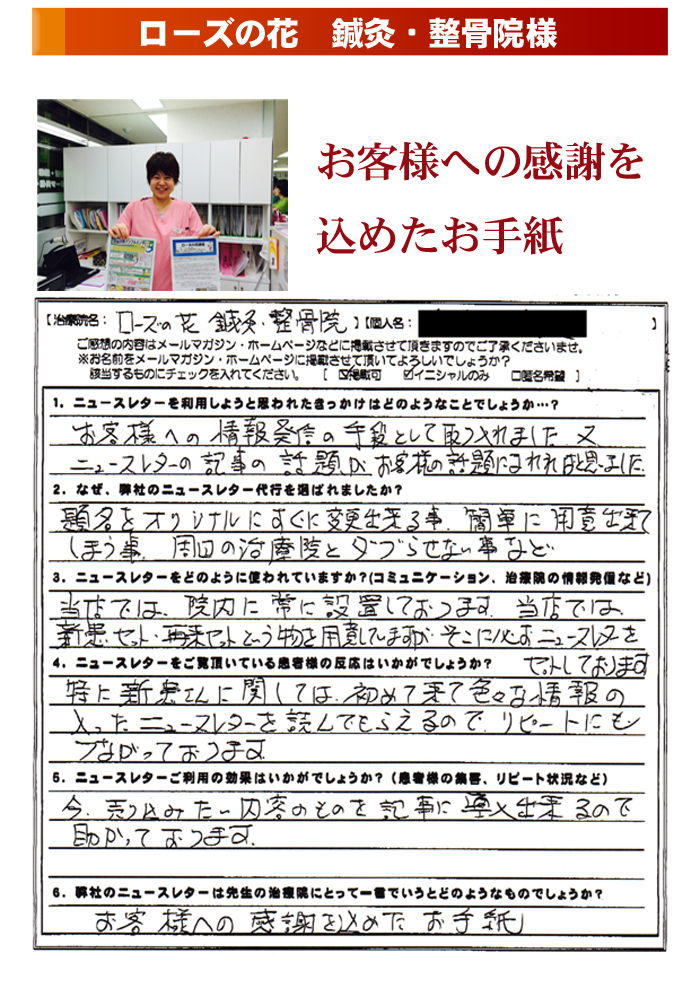 ローズの花　鍼灸・整骨院様
お客様への感謝を
込めたお手紙
【治療院名：ローズの花 鍼灸・整骨院】【個人名：　】
ご感想の内容はメールマガジン・ホームページなどに掲載させて頂きますのでご了承くださいませ。
※お名前をメールマガジン・ホームページに掲載させて頂いてよろしいでしょうか？
該当するものにチェックを入れてください。　［　☑掲載可　☑イニシャルのみ　□匿名希望　］
1．ニュースレターを利用しようと思われたきっかけはどのようなことでしょうか…？
お客様への情報発信の手段として取り入れました。又
ニュースレターの記事の話題が、お客様の話題になれればと思いました。
2．なぜ、弊社のニュースレター代行を選ばれましたか？
題名をオリジナルにすぐに変更出来る事、簡単に用意出来て
しまう事、周囲の治療院とダブらせない事など
3．ニュースレターをどのように使われていますか？(コミュニケーション、治療院の情報発信など)
当店では、院内に常に設置しております。当店では、
新患セット・再来セットという物を用意していますが、そこに必ずニュースレターを
セットしております
4．ニュースレターをご覧頂いている患者様の反応はいかがでしょうか？
特に新患さんに関しては、初めて来て色々な情報の
入ったニュースレターを読んでもらえるので、リピートにも
つながっております。
5．ニュースレターご利用の効果はいかがでしょうか？（患者様の集客、リピート状況など）
今、売り込みたい内容のものを記事に導入出来るので
助かっております。
6．弊社のニュースレターは先生の治療院にとって一言でいうとどのようなものでしょうか？
お客様への感謝を込めたお手紙」